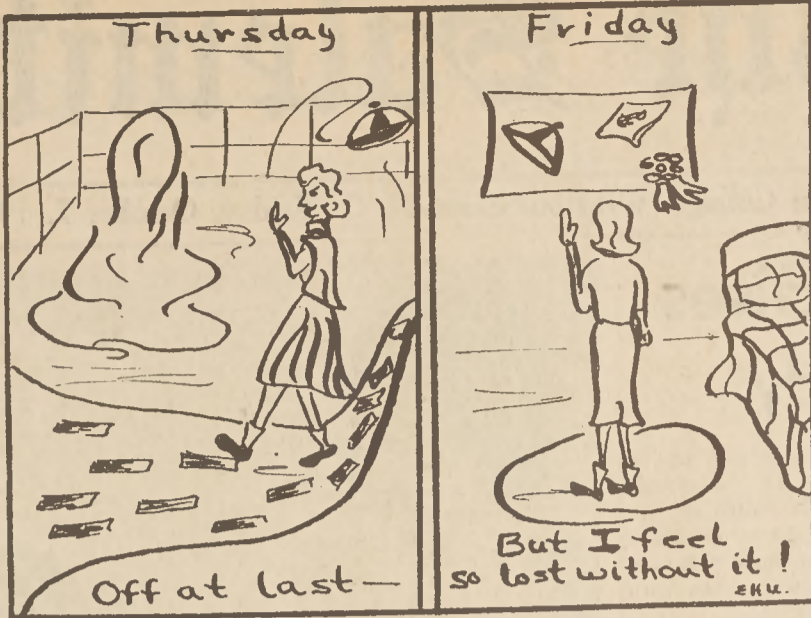 Thursday
Off at last —
Friday
But I feel
so lost without it!
EHU.